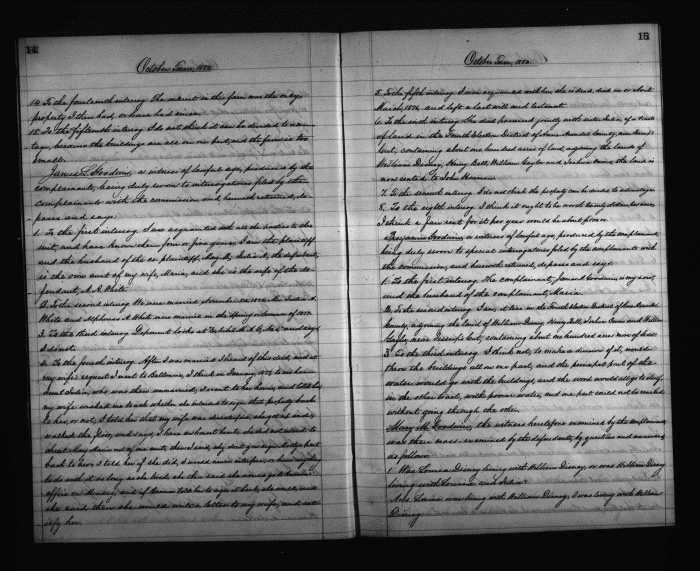 14
October Term, 1882
14. To the fourteenth interrog. The interest in this farm was the only
property I then had, or have had since.
15. To the fifteenth interrog. I do not think it can be divided to advan-
tage, because the buildings are all on one part, and the farm is too
small.
James L. Goodwin, a witness of lawful age, produced by the
complainants, being duly sworn to interrogatories filed by the
complainants with the commission and herewith returned, de-
poses and says:
1. To the first interrog. I am acquainted with all the parties to this
suit, and have known them
and the husband of the co. plaintiff, Mary M., Julia A. the defendant,
is the own aunt of my wife, Maria, and she is the wife of the de-
fendant, A. R. White.
2. To the second interrog. We were married
White and Alphonso R. White were married in the Spring
3. To the third interrog. Deponent looks at Exhibit and says
I do not.
4. To the fourth interrog. After I was married I heard of this deed, and at
my wife's request I went to Baltimore, I think in January, 1879, to see her
aunt Julia, who was then unmarried; I went to her house, and told her
my wife wished me to ask whether she intended to sign that property back
to her, or not, I told her that my wife was
walked the floor, and says, I have no heart to hurt, she did not want to
cheat Mary Maria out of one cent, then I said, why don't you sign the
back to her, I told her if she did, I would never interfere
with it as long as she lived, she then said she
office on Monday, and if told her to sign it back, she would, and
she said then she would write a letter to my wife, and satis-
fy her.
15
October Term, 1882
5. To the fifth interrog. I was acquainted with her, she is dead, died on or about
March, 1876, and left a last will and testament.
6. To the sixth interrog. She died possessed jointly with sister Julia, of a tract
of land in the Fourth Election District of Anne Arundel County,
containing about one hundred acres of land, adjoining the lands of
William Disney, Henry Ball, William Gaylor and Joshua the land is
now rented to John
7. To the seventh interrog. I do not think the property can be divided to advantage
8. To the eighth interrog. I think it ought to be worth twenty dollars per acre
I think a fair rent for it per year would be about
Benjamin Goodwin, a witness of lawful age, produced by the complainants,
being duly sworn to special interrogatories filed by the complainants with
the commission, and herewith returned, deposes and says:
1. To the first interrog. The complainant, James Goodwin, is my son,
and the husband of the complainant, Maria.
2. To the second interrog. I am, it lies in the Fourth Election District of Anne Arundel
County, adjoining the land of William Disney, Henry Ball, Joshua and William
Gaylor, near containing about one hundred acres more or less
3. To the third interrog. I think not, to make a division of it, would
throw the buildings all on one part, and the principal part of the
water would go with the buildings, and the wood would all go to itself,
in the other tract, with poorer water, and one part could not be reached
without going through the other.
Mary M. Goodwin, the witness heretofore examined by the complainants
was then cross-examined by the defendants, by question and answer
as follows:
1. Was Louisa Disney living with William Disney, or was William Disney
living with Louisa and Julia?
Ans. Louisa was living with William Disney, I was living with William
Disney.